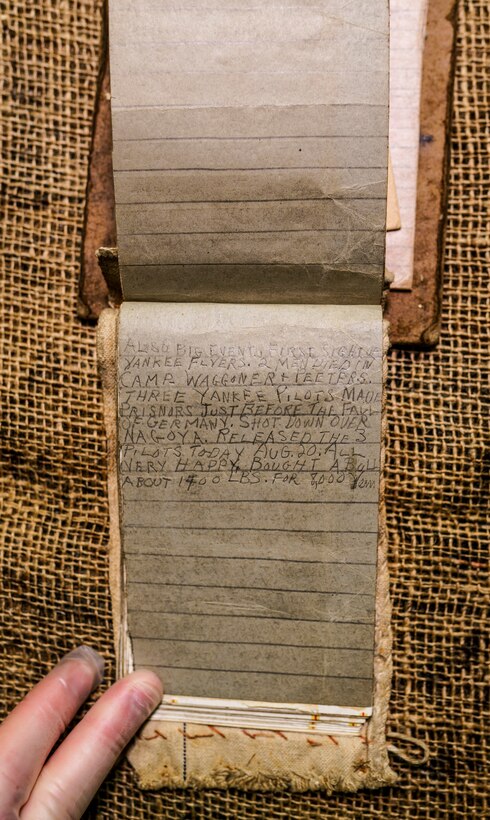 BIG EVENT, FIRST SIGHT OF
YANKEE FLYERS. 2 MEN DIED IN
CAMP. WAGGONER & TEETERS.
THREE YANKEE PILOTS MADE
PRISNORS JUST BEFORE THE FALL
OF GERMANY. SHOT DOWN OVER
NAGOYA. RELEASED THE 3
PILOTS TODAY AUG. 20. ALL
VERY HAPPY. BOUGHT A BULL
ABOUT 1400 LBS. FOR 8,000 Yen.